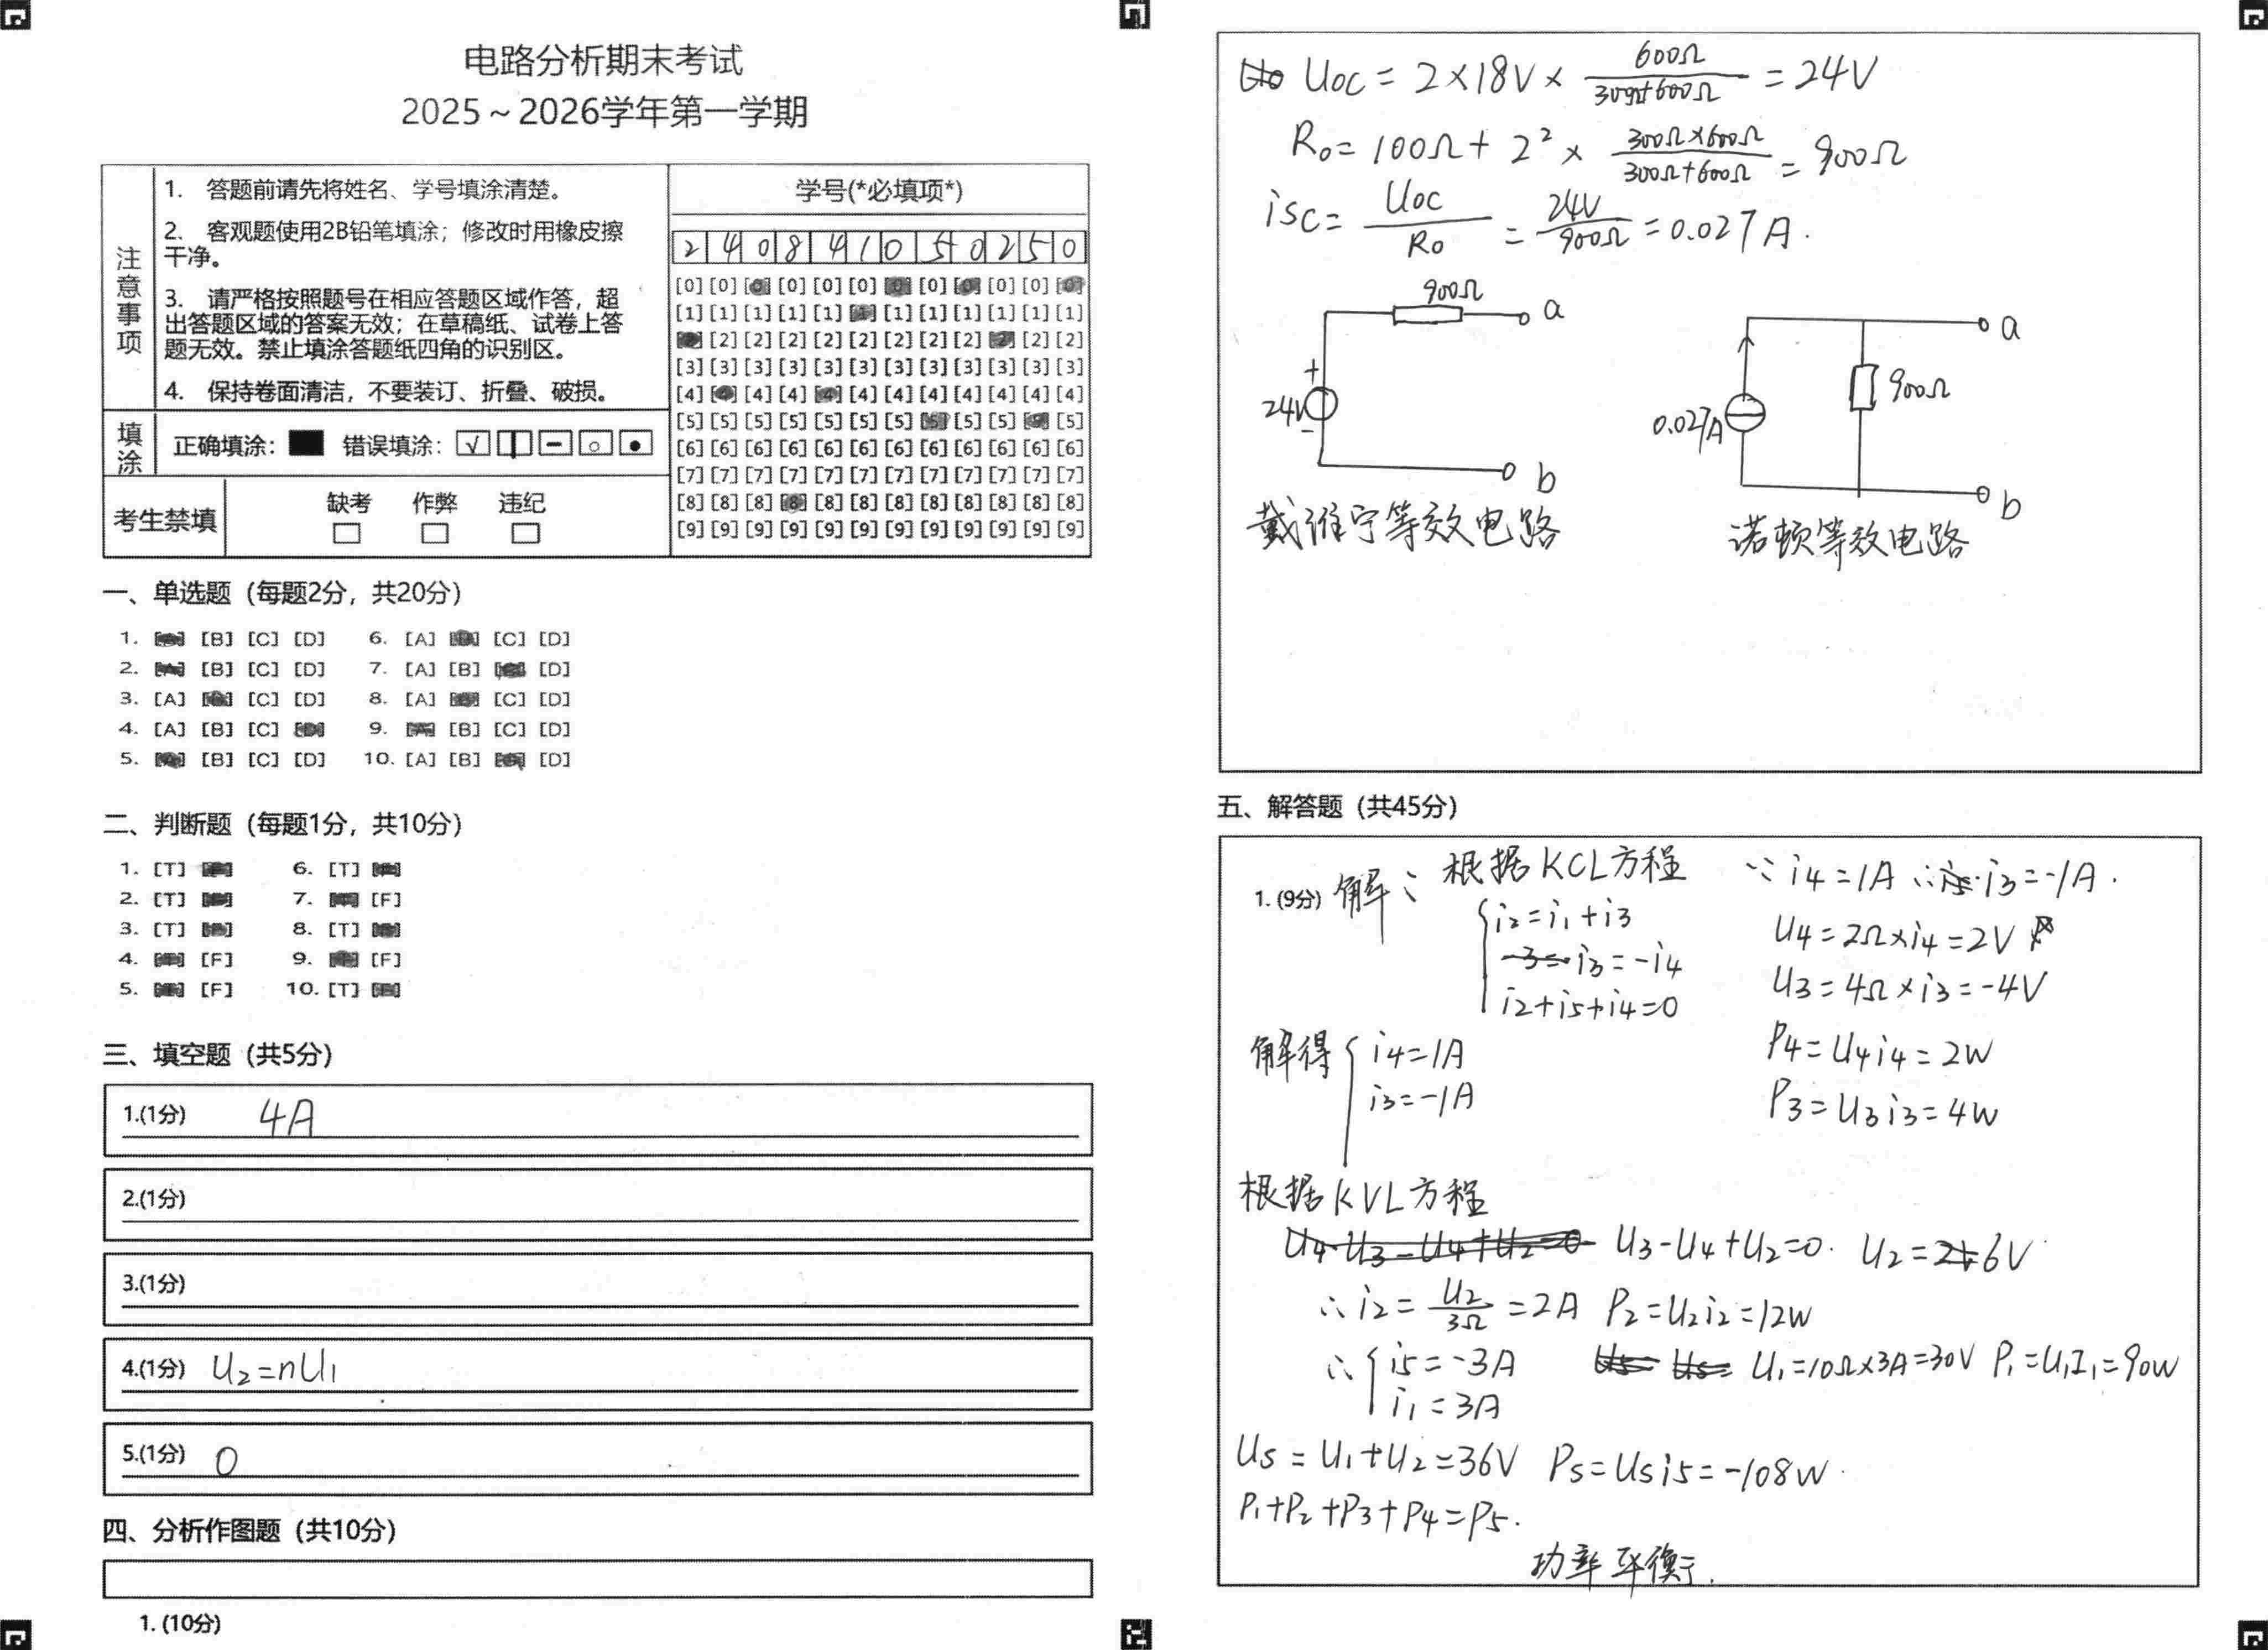 电路分析期末考试
2025～2026学年第一学期
注意事项
1. 答题前请先将姓名、学号填涂清楚。
2. 客观题使用2B铅笔填涂；修改时用橡皮擦
干净。
3. 请严格按照题号在相应答题区域作答，超
出答题区域的答案无效；在草稿纸、试卷上答
题无效。禁止填涂答题纸四角的识别区。
4. 保持卷面清洁，不要装订、折叠、破损。
填涂
正确填涂： 错误填涂：
考生禁填
缺考 作弊 违纪
学号(*必填项*)
2 4 0 8 4 1 0 5 0 2 5 0
[0] [0] [0] [0] [0] [0] [0] [0] [0] [0] [0] [0]
[1] [1] [1] [1] [1] [1] [1] [1] [1] [1] [1] [1]
[2] [2] [2] [2] [2] [2] [2] [2] [2] [2] [2]
[3] [3] [3] [3] [3] [3] [3] [3] [3] [3] [3] [3]
[4] [4] [4] [4] [4] [4] [4] [4] [4] [4] [4] [4]
[5] [5] [5] [5] [5] [5] [5] [5] [5] [5] [5] [5]
[6] [6] [6] [6] [6] [6] [6] [6] [6] [6] [6] [6]
[7] [7] [7] [7] [7] [7] [7] [7] [7] [7] [7] [7]
[8] [8] [8] [8] [8] [8] [8] [8] [8] [8] [8] [8]
[9] [9] [9] [9] [9] [9] [9] [9] [9] [9] [9] [9]
一、单选题（每题2分，共20分）
1. [B] [C] [D] 6. [A] [C] [D]
2. [B] [C] [D] 7. [A] [B] [D]
3. [A] [C] [D] 8. [A] [C] [D]
4. [A] [B] [C] 9. [B] [C] [D]
5. [B] [C] [D] 10. [A] [B] [D]
二、判断题（每题1分，共10分）
1. [T] 6. [T]
2. [T] 7. [F]
3. [T] 8. [T]
4. [F] 9. [F]
5. [F] 10. [T]
三、填空题（共5分）
1.(1分) 4A
2.(1分)
3.(1分)
4.(1分) U₂=nU₁
5.(1分) 0
四、分析作图题（共10分）
1. (10分)
Uoc = 2×18V× 600Ω/(300Ω+600Ω) = 24V
R₀= 100Ω + 2² × (300Ω×600Ω)/(300Ω+600Ω) = 900Ω
isc= Uoc/R₀ = 24V/900Ω = 0.027A.
900Ω
a
+
24V
-
b
戴维宁等效电路
a
0.027A
900Ω
b
诺顿等效电路
五、解答题（共45分）
1. (9分) 解： 根据KCL方程
i₂=i₁+i₃
i₃=-i₄
i₂+i₅+i₄=0
解得 i₄=1A
i₃=-1A
∵ i₄=1A ∴ i₃=-1A.
U₄=2Ω×i₄=2V
U₃=4Ω×i₃=-4V
P₄=U₄i₄=2W
P₃=U₃i₃=4W
根据KVL方程
U₃-U₄+U₂=0. U₂=6V
∴ i₂= U₂/3Ω =2A P₂=U₂i₂=12W
∴ i₅=-3A
i₁=3A
U₁=10Ω×3A=30V P₁=U₁I₁=90W
Us=U₁+U₂=36V Ps=Usi₅=-108W.
P₁+P₂+P₃+P₄=P₅.
功率平衡.